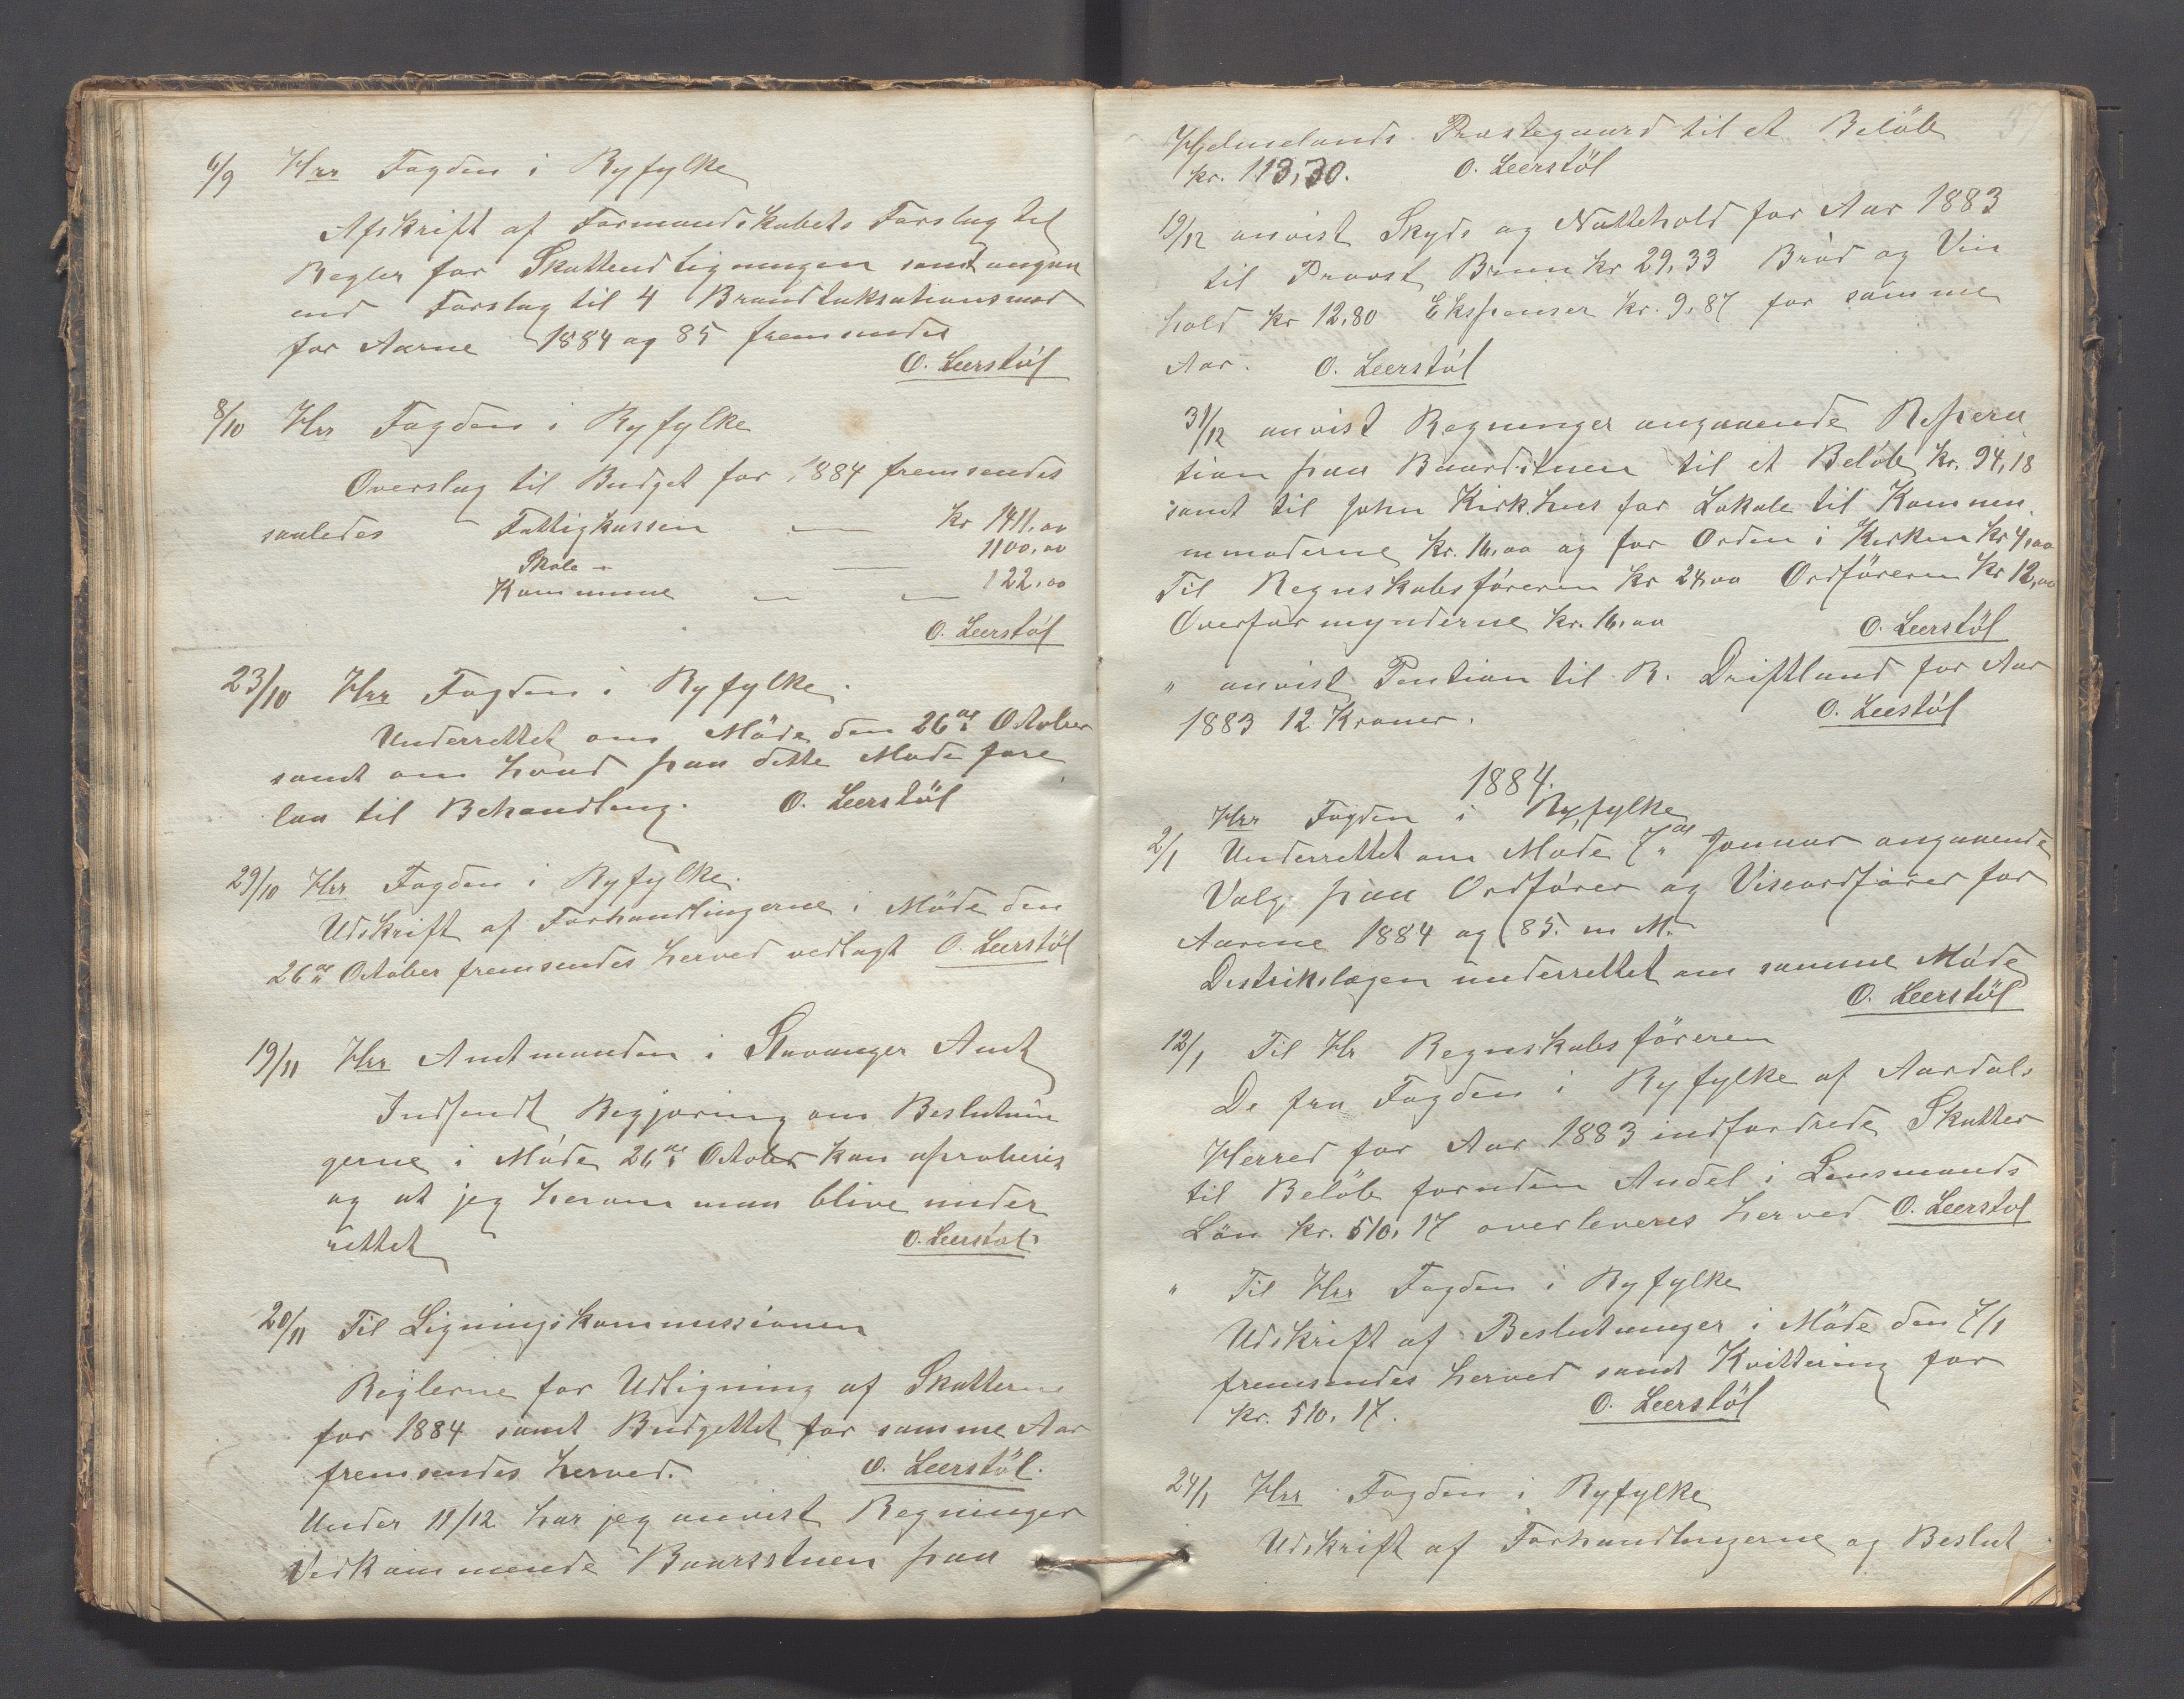 6/9 Hrr Fogden i Ryfylke
Afskrift af Formandskabets Forslag til
Regler for Skatteudligningen samt angaa
end Forslag til 4 Brandtaksationsmæd
for Aarne 1884 og 85 fremsendes
O. Leerstöl
8/10 Hrr Fogden i Ryfylke
Overslag til Budget for 1884 fremsendes
saaledes Fattigkassen — Kr 1411,00
Skole - — 1100,00
Kommune — — 122,00
O. Leerstöl
23/10 Hrr Fogden i Ryfylke.
Underrettet om Möde den 26de October
samt om hvad paa dette Möde fore
laa til Behandling. O. Leerstöl
29/10 Hrr Fogden i Ryfylke.
Udskrift af Forhandlingerne i Möde den
26de October fremsendes herved vedlagt O. Leerstöl
19/11 Hrr Amtmanden i Stavanger Amt
Indsendt Begjæring om Beslutnin
gerne i Möde 26de October kan aproberes
og at jeg herom maa blive under
rettet O. Leerstöl
20/11 Til Ligningskommissionen
Reglerne for Udligning af Skatterne
for 1884 samt Budgettet for samme Aar
fremsendes herved. O. Leerstöl.
Under 11/12 har jeg anvist Regninger
Vedkommende Baarsstuen paa
Hjelmelands Præstegaard til et Belöb
kr. 113,30. O. Leerstöl
19/12 anvist Skyds og Nattehold for Aar 1883
til Provst Bruun kr 29,33 Bröd og Vin
hold kr 12,80 Ekspenser kr. 9,87 for samme
Aar. O. Leerstöl
31/12 anvist Regninger angaaende Repera
tion paa Baardstuen til et Belöb kr. 94,18
samt til John Kirkhus for Lokale til Kommu
nmöderne kr. 16,00 og for Orden i Kirken kr 4,00
Til Regnskabsföreren kr 24,00 Ordföreren kr 12,00
Overformynderne kr. 16,00 O. Leerstöl
" anvist Pention til R. Driftland for Aar
1883 12 Kroner. O. Leestöl
1884.
Hrr Fogden i Ryfylke
2/1 Underrettet om Möde 7de Januar angaaende
Valg paa Ordförer og Viseordförer for
Aarene 1884 og 85. m M.
Distrikslægen underrettet om samme Möde
O. Leerstöl
12/1 Til Hr Regnskabsföreren
De fra Fogden i Ryfylke af Aardals
Herred for Aar 1883 indfordrede Skatter
til Belöb foruden Andel i Lensmands
Lön kr. 510,17 overleveres herved O. Leerstöl
" Til Hrr Fogden i Ryfylke
Udskrift af Beslutninger i Möde den 7/1
fremsendes herved samt Kvittering for
kr. 510,17. O. Leerstöl
24/1 Hrr Fogden i Ryfylke
Udskrift af Forhandlingerne og Beslut